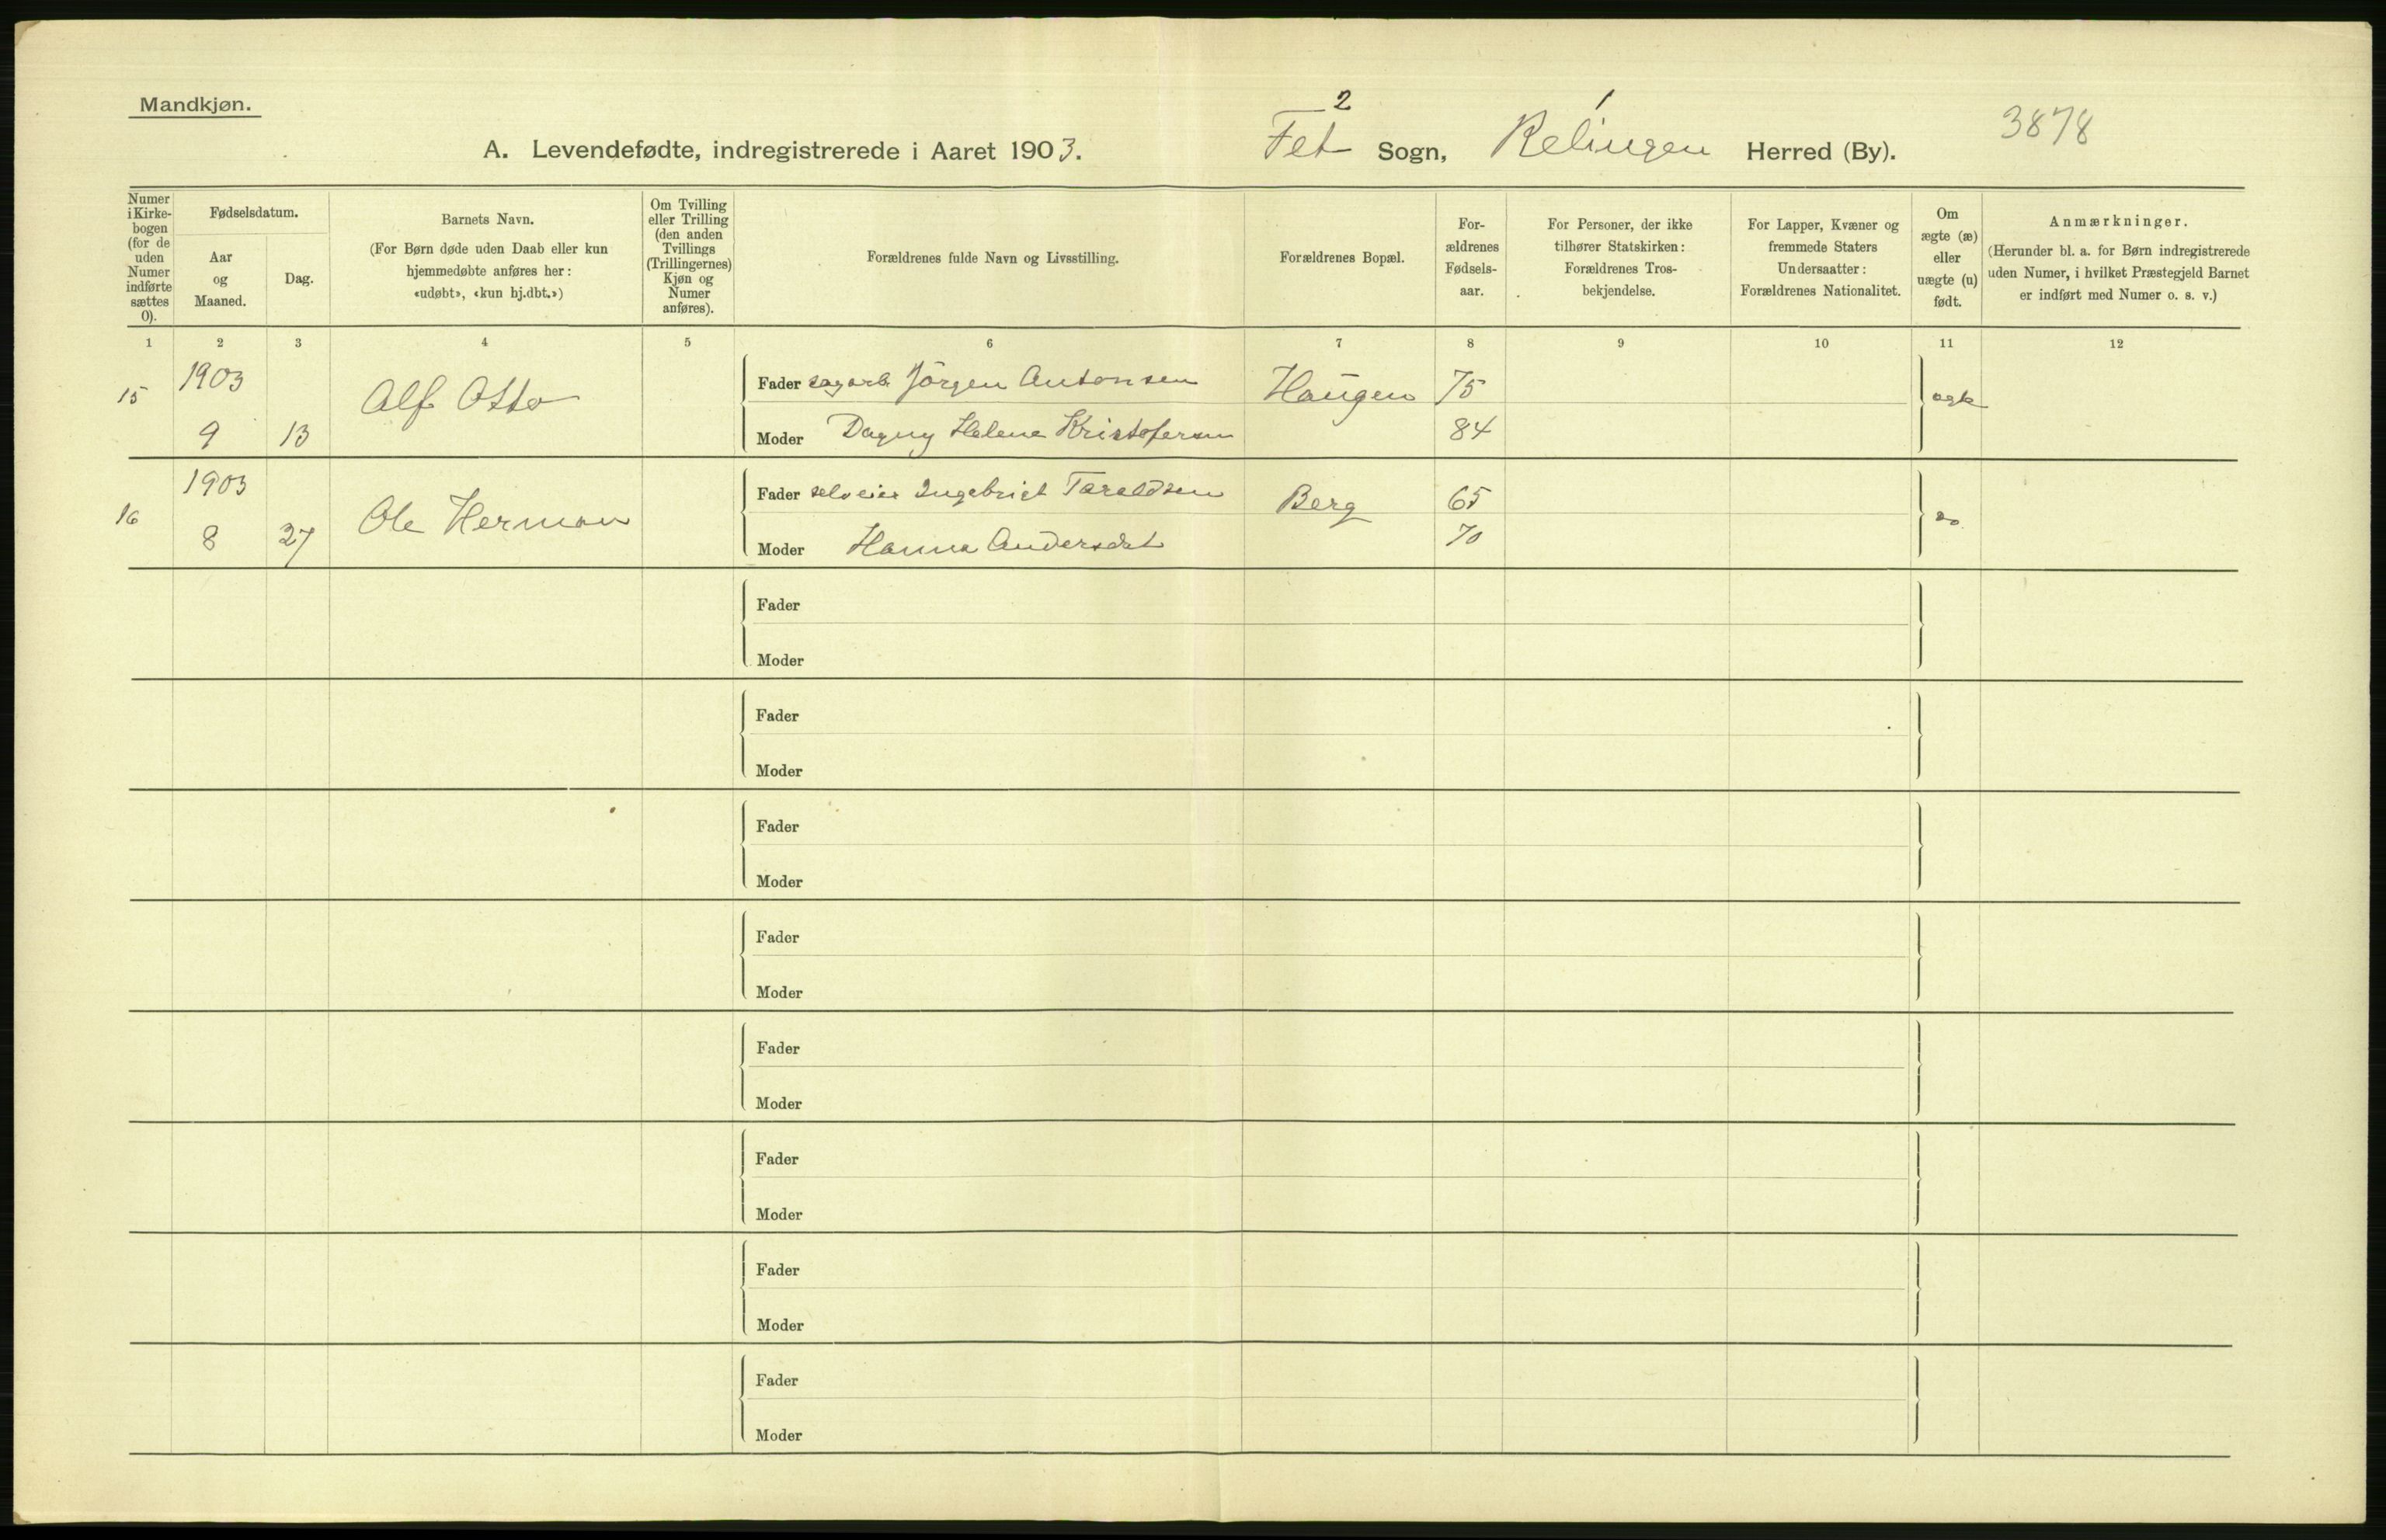 Mandkjøn.
A. Levendefødte, indregistrerede i Aaret 1903.
2
Fet Sogn, Relingen Herred (By).
3878
Numer i Kirke-bogen (for de uden Numer indførte sættes 0).
Fødselsdatum.
Aar og Maaned.
Dag.
Barnets Navn.
(For Børn døde uden Daab eller kun
hjemmedøbte anføres her:
«udøbt», «kun hj.dbt.»)
Om Tvilling
eller Trilling
(den anden
Tvillings
(Trillingernes)
Kjøn og
Numer
anføres).
Forældrenes fulde Navn og Livsstilling.
Forældrenes Bopæl.
For-
ældrenes
Fødsels-
aar.
For Personer, der ikke
tilhører Statskirken:
Forældrenes Tros-
bekjendelse.
For Lapper, Kvæner og
fremmede Staters
Undersaatter:
Forældrenes Nationalitet.
Om
ægte (æ)
eller
uægte (u)
født.
Anmærkninger.
(Herunder bl. a. for Børn indregistrerede
uden Numer, i hvilket Præstegjeld Barnet
er indført med Numer o. s. v.)
1 2 3 4 5 6 7 8 9 10 11 12
15 1903 9 13 Alf Otto
Fader sagarb. Jörgen Antonsen Haugen 75
Moder Dagny Helene Kristofersen 84
16 1903 8 27 Ole Herman
Fader selveier Ingebrigt Taraldsen Berg 65
Moder Hanna Andersdat 70
do
Fader
Moder
Fader
Moder
Fader
Moder
Fader
Moder
Fader
Moder
Fader
Moder
Fader
Moder
Fader
Moder